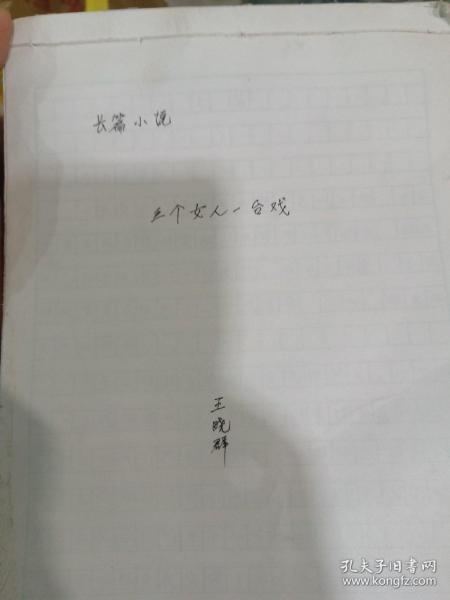 长篇小说
三个女人一台戏
王晓群
孔夫子旧书网
www.kongfz.com